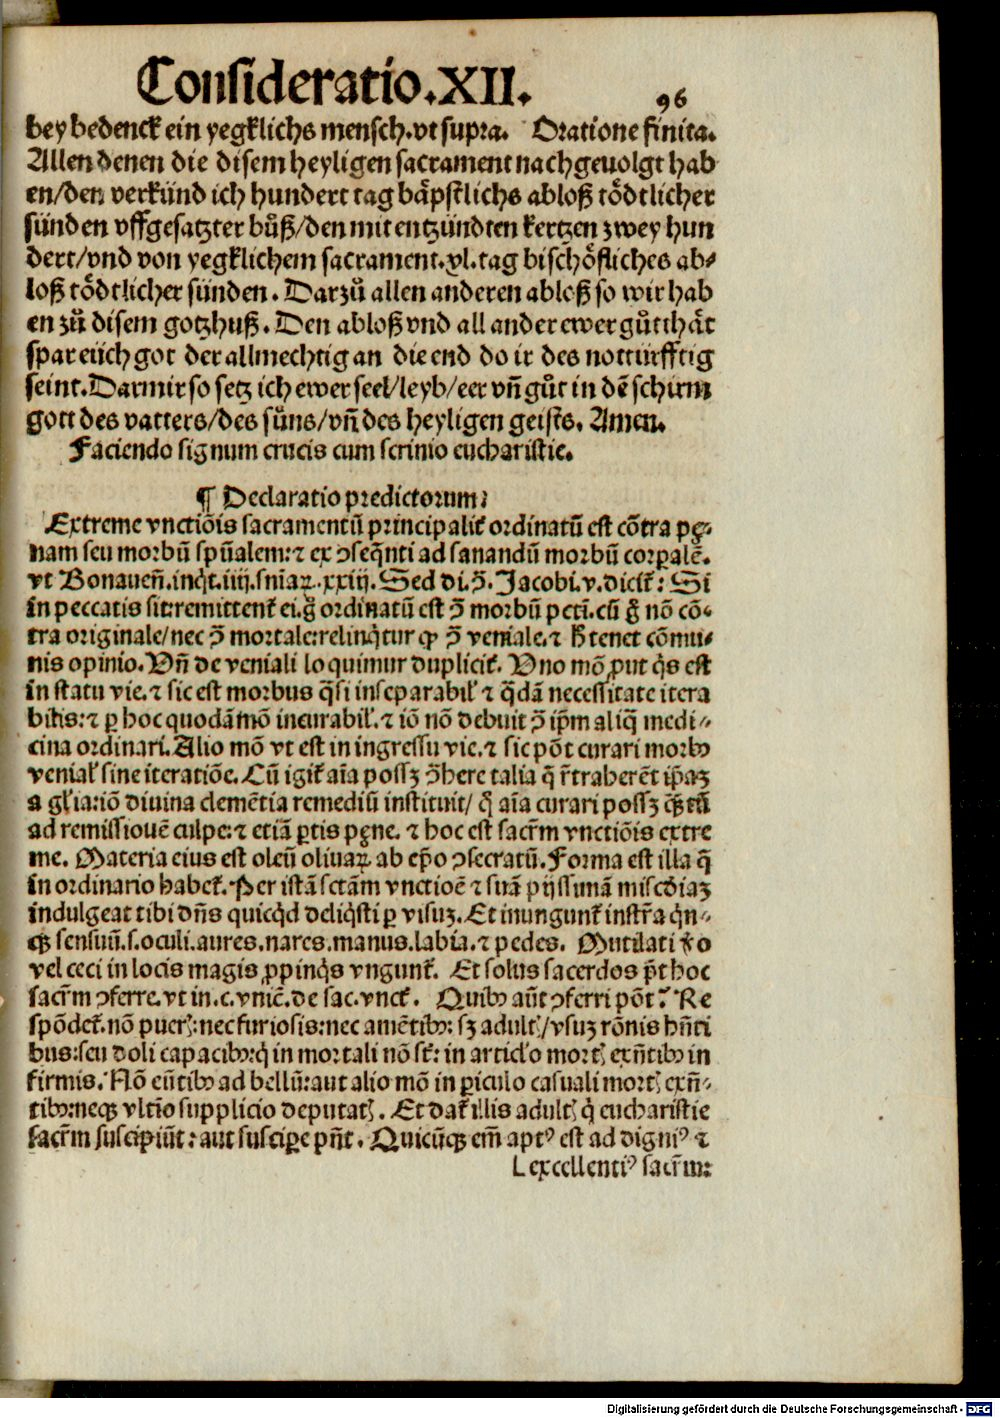 Consideratio.XII.
96
bey bedenck ein yegklichs mensch.vt supra. Oratione finita.
Allen denen die disem heyligen sacrament nachgeuolgt hab
en/den verkünd ich hundert tag bäpstlichs abloß tödtlicher
sünden vffgesatzter bůß/den mit entzündten kertzen zwey hun
dert/vnd von yegklichem sacrament.xl.tag bischöfliches ab⸗
loß tödtlicher sünden. Darzů allen anderen abloß so wir hab
en zů disem gotzhuß. Den abloß vnd all ander ewer gůtthät
spar eüch got der allmechtig an die end do ir des nottürfftig
seint.Darmir so setz ich ewer seel/leyb/eer vñ gůt in dē schirm
gott des vatters/des süns/vñ des heyligen geists. Amen.
Faciendo signum crucis cum scrinio eucharistie.
¶ Declaratio predictorum:
Extreme vnctiōis sacramentū principalit̉ ordinatū est cōtra pę⸗
nam seu morbū spūalem:⁊ ex ↄseq̄nti ad sanandū morbū corꝑalē.
vt Bonaueñ.inq̇t.iiij.sniaꝝ.xxiij. Sed di.ↄ̄. Jacobi.v.dicit̉: Si
in peccatis sit:remittent̉ ei.g̊ ordinatū est ↄ̄ morbū pcti.cū g̊ nō cō⸗
tra originale/nec ↄ̄ mortale:relinq̇tur ꝙ ↄ̄ veniale.⁊ tenet cōmu⸗
nis opinio. Vñ de veniali loquimur duplicit̉. Vno mō ꝓut q̇s est
in statu vie.⁊ sic est morbus q̄si inseparabil̉ ⁊ q̄dā necessitate itera
bilis:⁊ ꝑ hoc quodāmō incurabil̉.⁊ iō nō debuit ↄ̄ ip̄m aliq̄ medi⸗
cina ordinari. Alio mō vt est in ingressu vie.⁊ sic pōt curari morbꝰ
venial̉ sine iteratiōe. Cū igit̉ aīa possꝫ ↄ̄here talia q̄ r̄traherēt ip̄aꝫ
a gl̄ia:iō diuina clemētia remediū instituit/ q̊ aīa curari possꝫ ꝙ̄tū
ad remissiouē culpe:⁊ etiā ꝑtis pęne. ⁊ hoc est sacr̄m vnctiōis extre
me. Materia eius est oleū oliuaꝝ ab ep̄o ↄsecratū. Forma est illa q̄
in ordinario habet̉. Per istā sctām vnctioē ⁊ suā pijssimā miscd̄iaꝫ
indulgeat tibi dñs quicq̇d deliq̇sti ꝑ visuꝫ. Et inungunt̉ instr̄a q̇n⸗
ꝙ sensuū.s.oculi.aures.nares.manus.labia.⁊ pedes. Mutilati v̊o
vel ceci in locis magis ꝓpinq̇s vngunt̉. Et solus sacerdos pt̄ hoc
sacr̄m ↄferre.vt in.c.vnic̄.de sac.vnct̉. Quibꝰ aūt ↄferri pōt? Re
spōdet̉.nō pueris:nec furiosis:nec amētibꝰ: sꝫ adultis/vsuꝫ rōnis hñti
bus:seu doli capacibꝰ:q̇ in mortali nō st̉: in articl̉o mortis exñtibꝰ in
firmis. Nō eūtibꝰ ad bellū:aut alio mō in ꝑiculo casuali mortis exñ⸗
tibꝰ:neqꝫ vltīo supplicio deputatis. Et dat̉ illis adultis q̇ eucharistie
sacr̄m suscipiūt:aut suscipe pn̄t. Quicūqꝫ em̄ aptꝰ est ad digniꝰ ⁊
excellentiꝰ sacr̄m:
Digitalisierung gefördert durch die Deutsche Forschungsgemeinschaft - DFG